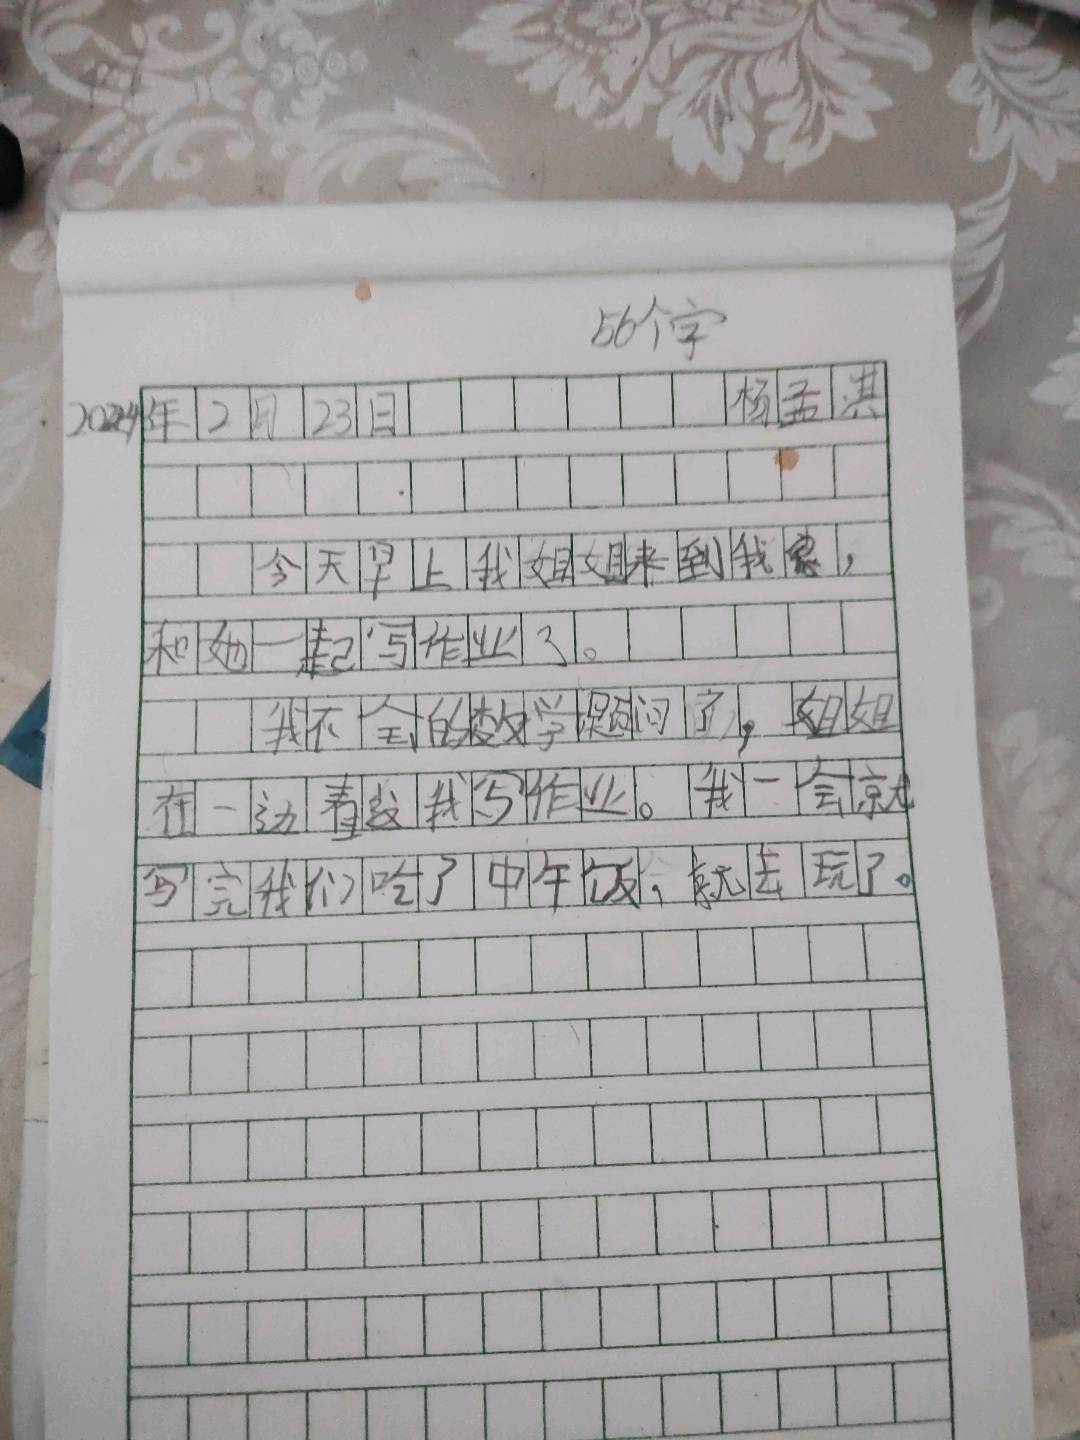 56个字
2024年2月23日 杨孟淇
今天早上我姐姐来到我家，
和她一起写作业了。
我不会的数学题问了，姐姐
在一边看我写作业。我一会就
写完我们吃了中午饭，就去玩了。